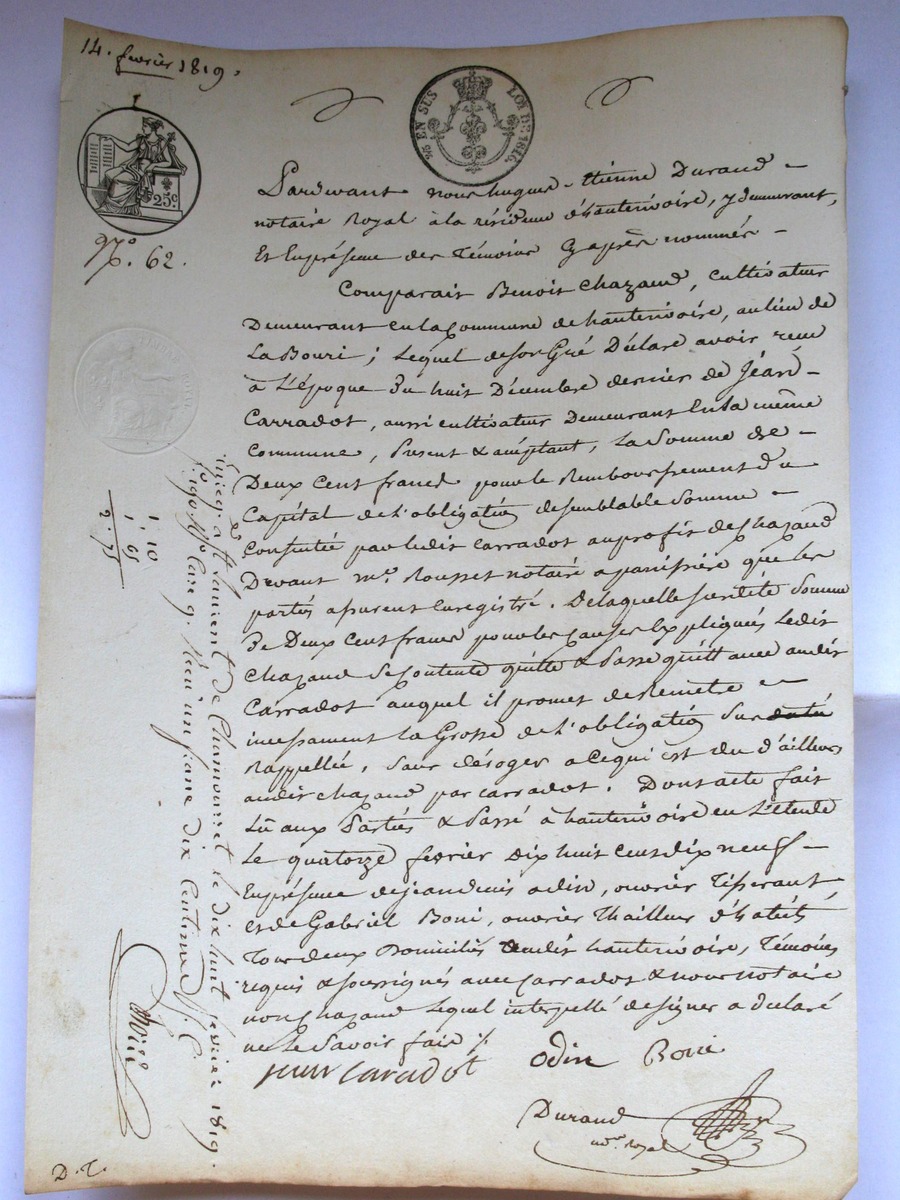 14. fevrier 1819.
EN SUS LOI DE 1816.
25c
No. 62.
Pardevant nous hugues-Etienne Durand -
notaire Royal à la résidence d'hauterivoire, y demeurant,
Et En présence des Témoins Cy après nommés -
Comparait Benoit Chazaud, cultivateur
Demeurant en la Commune de hauterivoire, au lieu de
La Bouri ; Lequel de son Gré Déclare avoir reçu
à L'époque Du huit Décembre dernier de Jéan -
Carradot, aussi cultivateur Demeurant En la même
Commune, Présent & acceptant, La Somme de -
Deux Cent francs pour le Remboursement Du
Capital de L'obligation de semblable Somme -
Consentie par ledit Carradot au profit de Chazaud
Devant me. Rousset notaire a que les
partés assurent Enregistré. De laquelle susdite Somme
De Deux Cent francs pour les causes Expliquées Ledit
Chazaud Se Contente quitte & Passe quitt ance audit
Carradot auquel il promet de Remettre -
incessament la Grosse de L'obligation Sus
Rappellée, Sans déroger à ce qui est du d'ailleurs
audit chazaud par Carradot. Dont acte fait
Lû aux Partiés & Passé à hauterivoire en L'étude
Le quatorze fevrier Dix huit cent dix neuf -
En présence de jean denis odin, ouvrier Tisserant
et de Gabriel Boni, ouvrier Thailleur d'habits
Tous deux Domiciliés audit hauterivoire, Témoins
requis & soussignés avec Carradot & nous notaire
non Chazaud Lequel interpellé de signer a déclaré
ne Le Savoir fair ./.
jean caradot
odin
Boni
Durand
nore. Royal
a St Laurent de Chamousset le dix huit fevrier 1819.
fo. 190 Vo Care 9. Reçu un franc dix centimes
1. 10
1. 65
2. 75
D. T.